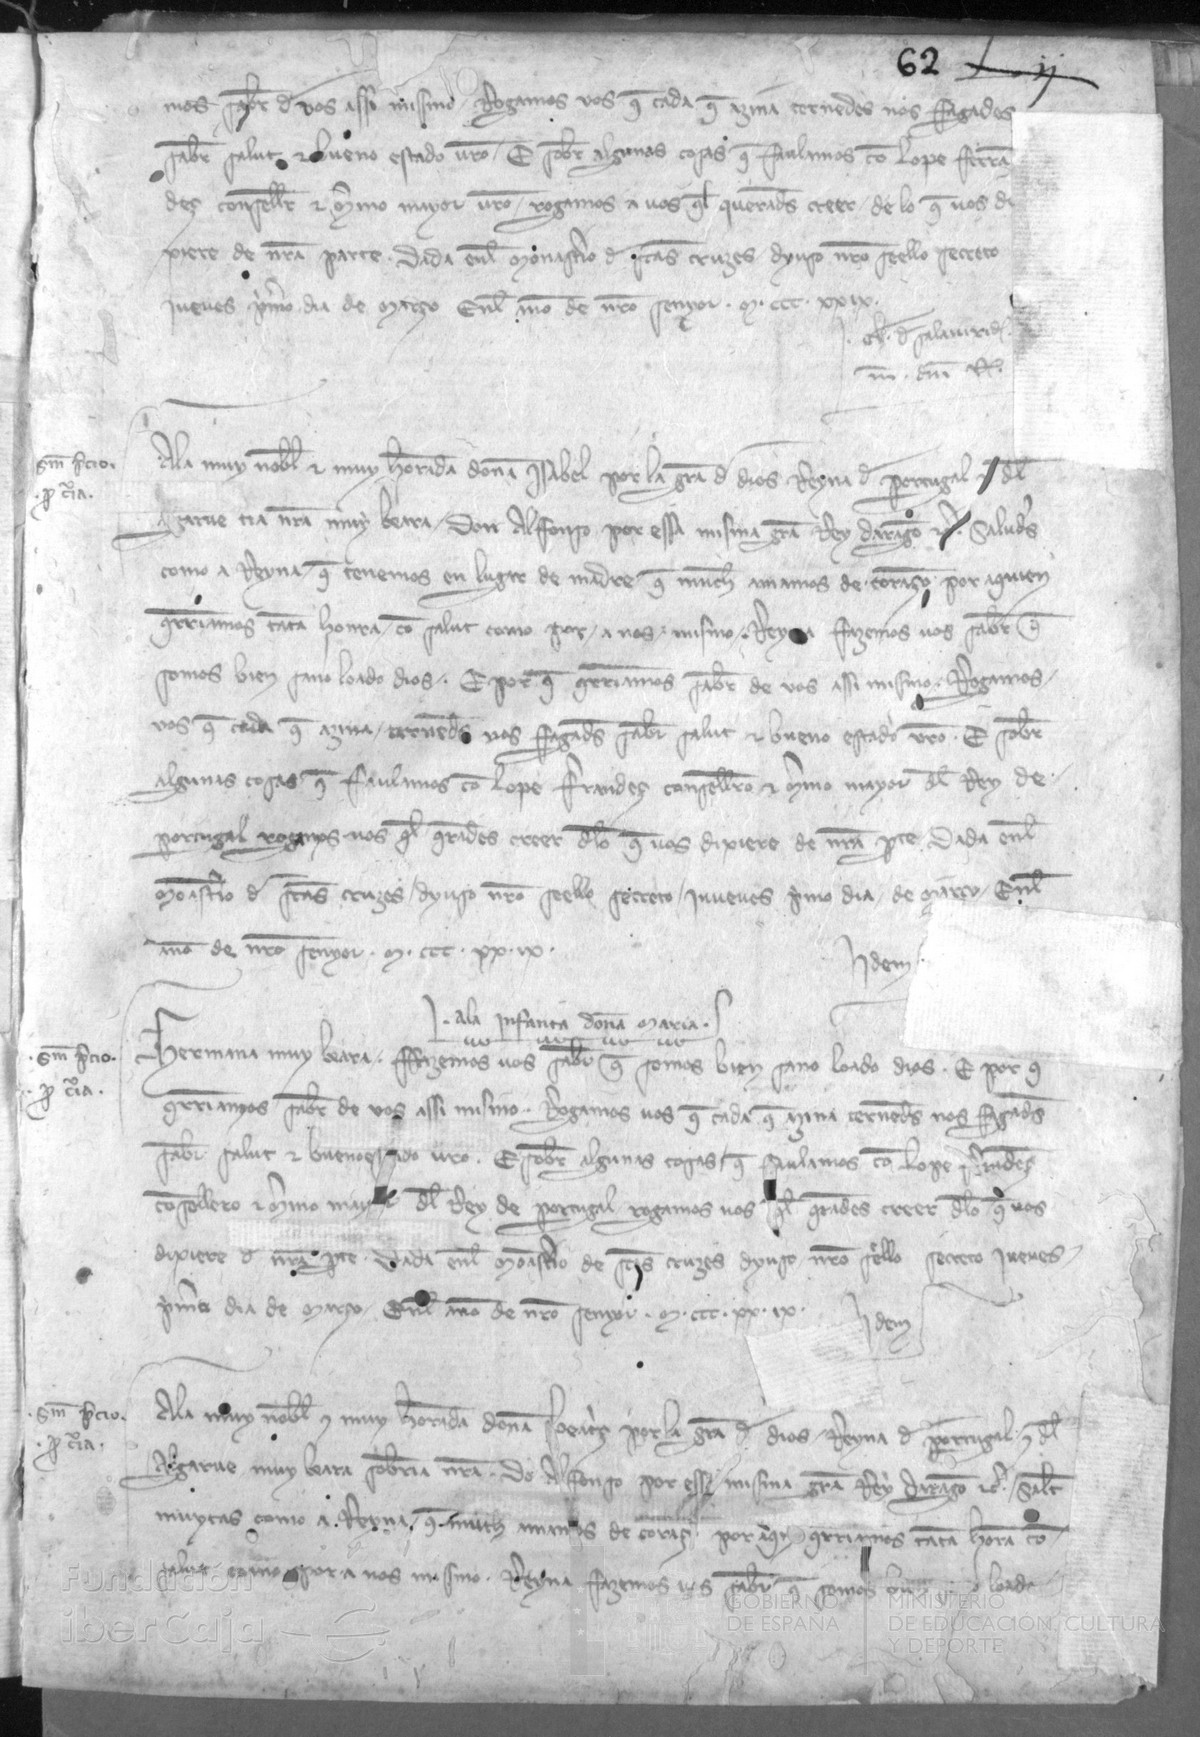 62 Lxij
mos sabr̄ d vos assi mismo Rogamos vos q̄ cada q̄ azina ternedes nos ffagades
sabr̄ salut ⁊ bueno estado vr̄o / E sobr̄ algunas cosas q̄ faulamos cō Lope ferrā
dez consellr̄ ⁊ m̄ino mayor vr̄o / rogamos a vos q̄l querads creer / de lo q̄ vos di
xiere de nr̄a parte . Dada enl̄ Monast̄io d sc̄as cruzes dyuso nr̄o seello secreto
jueves p̄mo dia de março Enl̄ ano de nr̄o senyor . M . ccc . xxix .
sm̄ p̄cio .
. p cīa .
Ala muy nobl̄ ⁊ muy hōrada dona Isabel por la gr̄a d dios Reyna d portugal ⁊ dl̄
algarue tia nr̄a muy beara / Don Alffonso por essa misma gr̄a Rey daragō ⁊c̄ . Saluds̄
como a Reyna / q̄ tenemos en lugar de madre q̄ much̄ amamos de coraço por aquien
q̄rriamos tāta honra / cō salut como por / a nos mismo . Reyna ffazemos vos sabr̄ q̄
somos bien sano loado dios . E por q̄ q̄rriamos sabr̄ de vos assi mismo . Rogamos /
vos q̄ cada q̄ azina / ternēds nos ffagads̄ sabr̄ salut ⁊ bueno estado vr̄o . E sobr̄
algunas cosas q̄ faulamos cō Lope Frandez consellero ⁊ m̄ino mayor dl̄ Rey de
portugal rogamos vos q̄l q̄rades creer dlo q̄ vos dixiere de nr̄a pte / Dada enl̄
Monast̄io d sc̄as cruzes / dyuso nr̄o seello secreto / jueves p̄mo dia de março / Enl̄
ano de nr̄o senyor . M . ccc . xx . ix .
Idem .
. ala Infanta dona Maria .
. sm̄ p̄cio .
. p cīa .
Hermana muy beara . ffazemos vos sabr̄ q̄ somos bien sano loado dios . E por q̄
q̄rriamos sabr̄ de vos assi mismo . Rogamos vos q̄ cada q̄ azina ternēds nos ffagads̄
sabr̄ salut ⁊ bueno estado vr̄o . E sobr̄ algunas cosas q̄ faulamos cō Lope frandez
cōsellero ⁊ m̄ino may dl̄ Rey de portugal rogamos vos q̄l q̄rades creer dlo q̄ vos
dixiere d nr̄a pte . Dada enl̄ Monast̄io de sc̄as cruzes dyuso nr̄o sello secreto jueves
p̄mo dia de março / Enl̄ ano de nr̄o senyor . M . ccc . xx . ix .
Idem
. sm̄ p̄cio .
. p cīa .
Ala muy nobl̄ ⁊ muy hōrada dona Beat̄z por la gr̄a d dios / Reyna d portugal ⁊ dl̄
Algarue / muy beara sobrīa nr̄a . Dō Alfonso por essa misma gr̄a Rey daragō ⁊c̄ . / Salut̄
muytas como a Reyna / q̄ much̄ amamos de coraç por aqui q̄rriamos tāta hōra cō
salut como por a nos mismo . Reyna fazemos vos sabr̄ q̄ somos loado
Fundación
iberCaja
GOBIERNO
DE ESPAÑA
MINISTERIO
DE EDUCACIÓN, CULTURA
Y DEPORTE